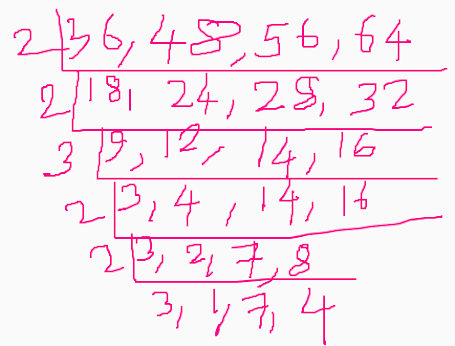 2 36, 48, 56, 64
2 18, 24, 28, 32
3 9, 12, 14, 16
2 3, 4, 14, 16
2 3, 2, 7, 8
3, 1, 7, 4